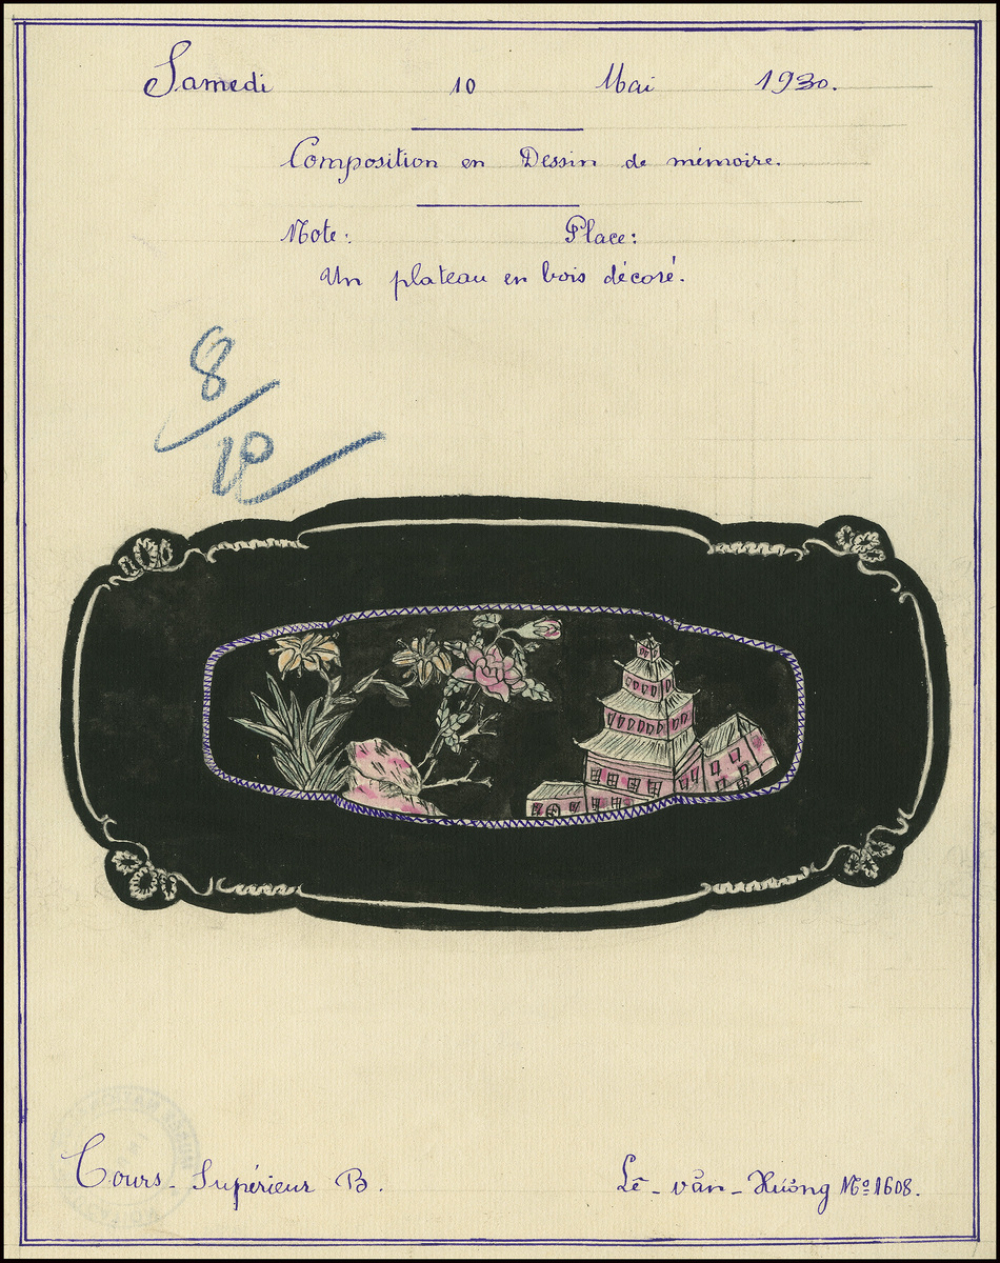 Samedi 10 Mai 1930.
Composition en Dessin de mémoire.
Note: Place:
Un plateau en bois décoré.
8/10
Cours - Supérieur B.
Lê - văn - Hướng Nº 1608.